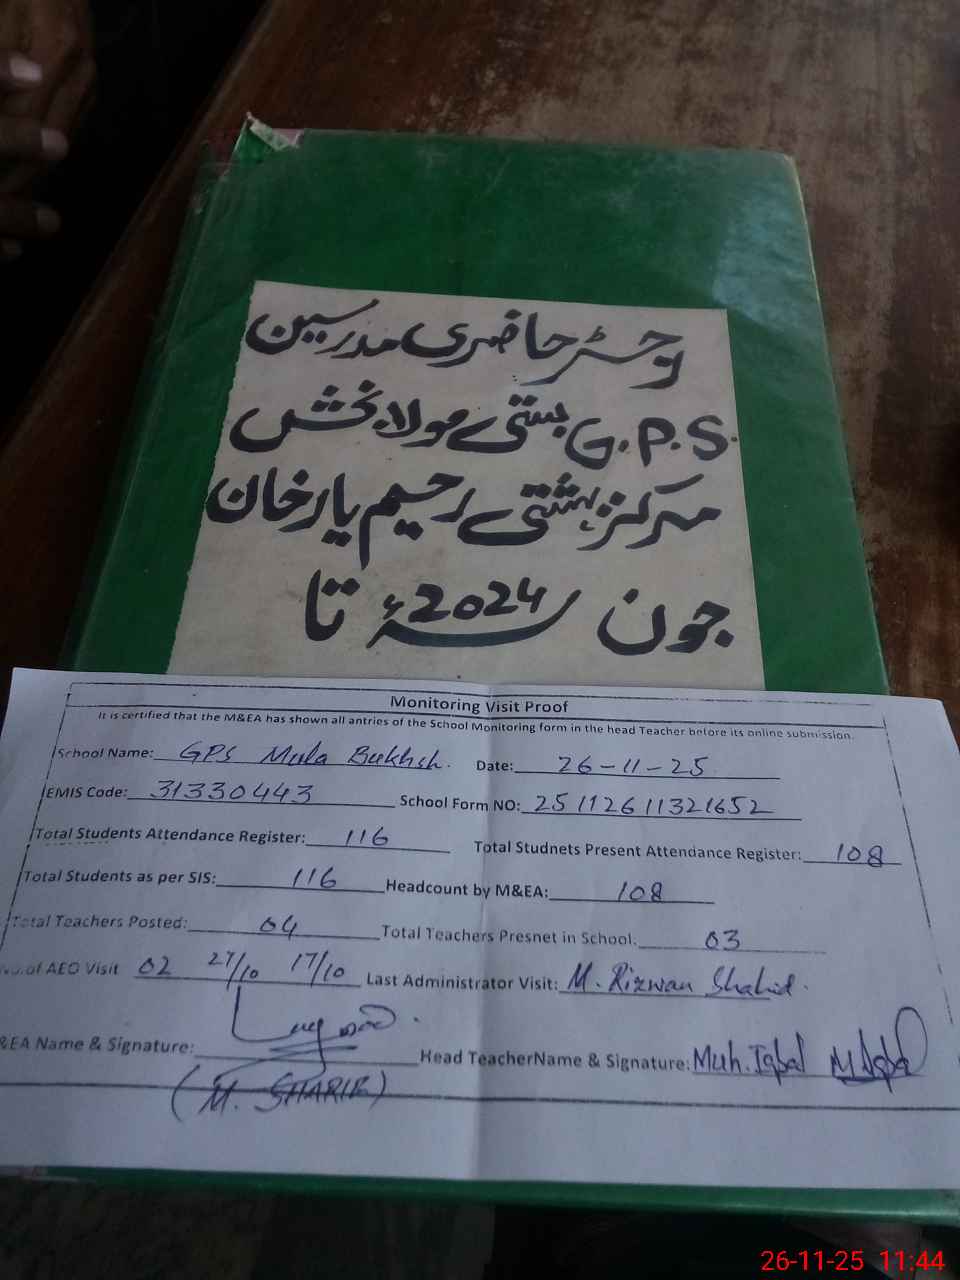 رجسٹر حاضری مدرسین
G.P.S. بستی مولا بخش
مرکز بہشتی رحیم یار خان
جون 2024ء تا
Monitoring Visit Proof
It is certified that the M&EA has shown all antries of the School Monitoring form in the head Teacher before its online submission.
School Name: GPS Mula Bukhsh. Date: 26-11-25
EMIS Code: 31330443 School Form NO: 25112611321652
Total Students Attendance Register: 116 Total Studnets Present Attendance Register: 108
Total Students as per SIS: 116 Headcount by M&EA: 108
Total Teachers Posted: 04 Total Teachers Presnet in School: 03
No.of AEO Visit 02 27/10 17/10 Last Administrator Visit: M. Rizwan Shahid.
&EA Name & Signature: Head TeacherName & Signature: Muh. Iqbal M Iqbal
(M. SHARIF)
26-11-25 11:44